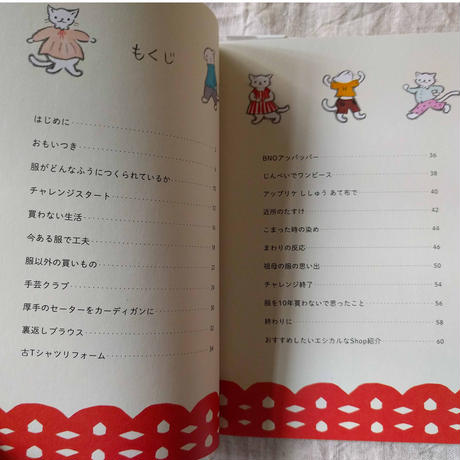 もくじ
はじめに
おもいつき
服がどんなふうにつくられているか
チャレンジスタート
買わない生活
今ある服で工夫
服以外の買いもの
手芸クラブ
厚手のセーターをカーディガンに
裏返しブラウス
古Tシャツリフォーム 34
BNOアッパッパー 36
じんべいでワンピース 38
アップリケ ししゅう あて布で 40
近所のたすけ 42
こまった時の染め 44
まわりの反応 46
祖母の服の思い出 50
チャレンジ終了 54
服を10年買わないで思ったこと 56
終わりに 58
おすすめしたいエシカルなShop紹介 60